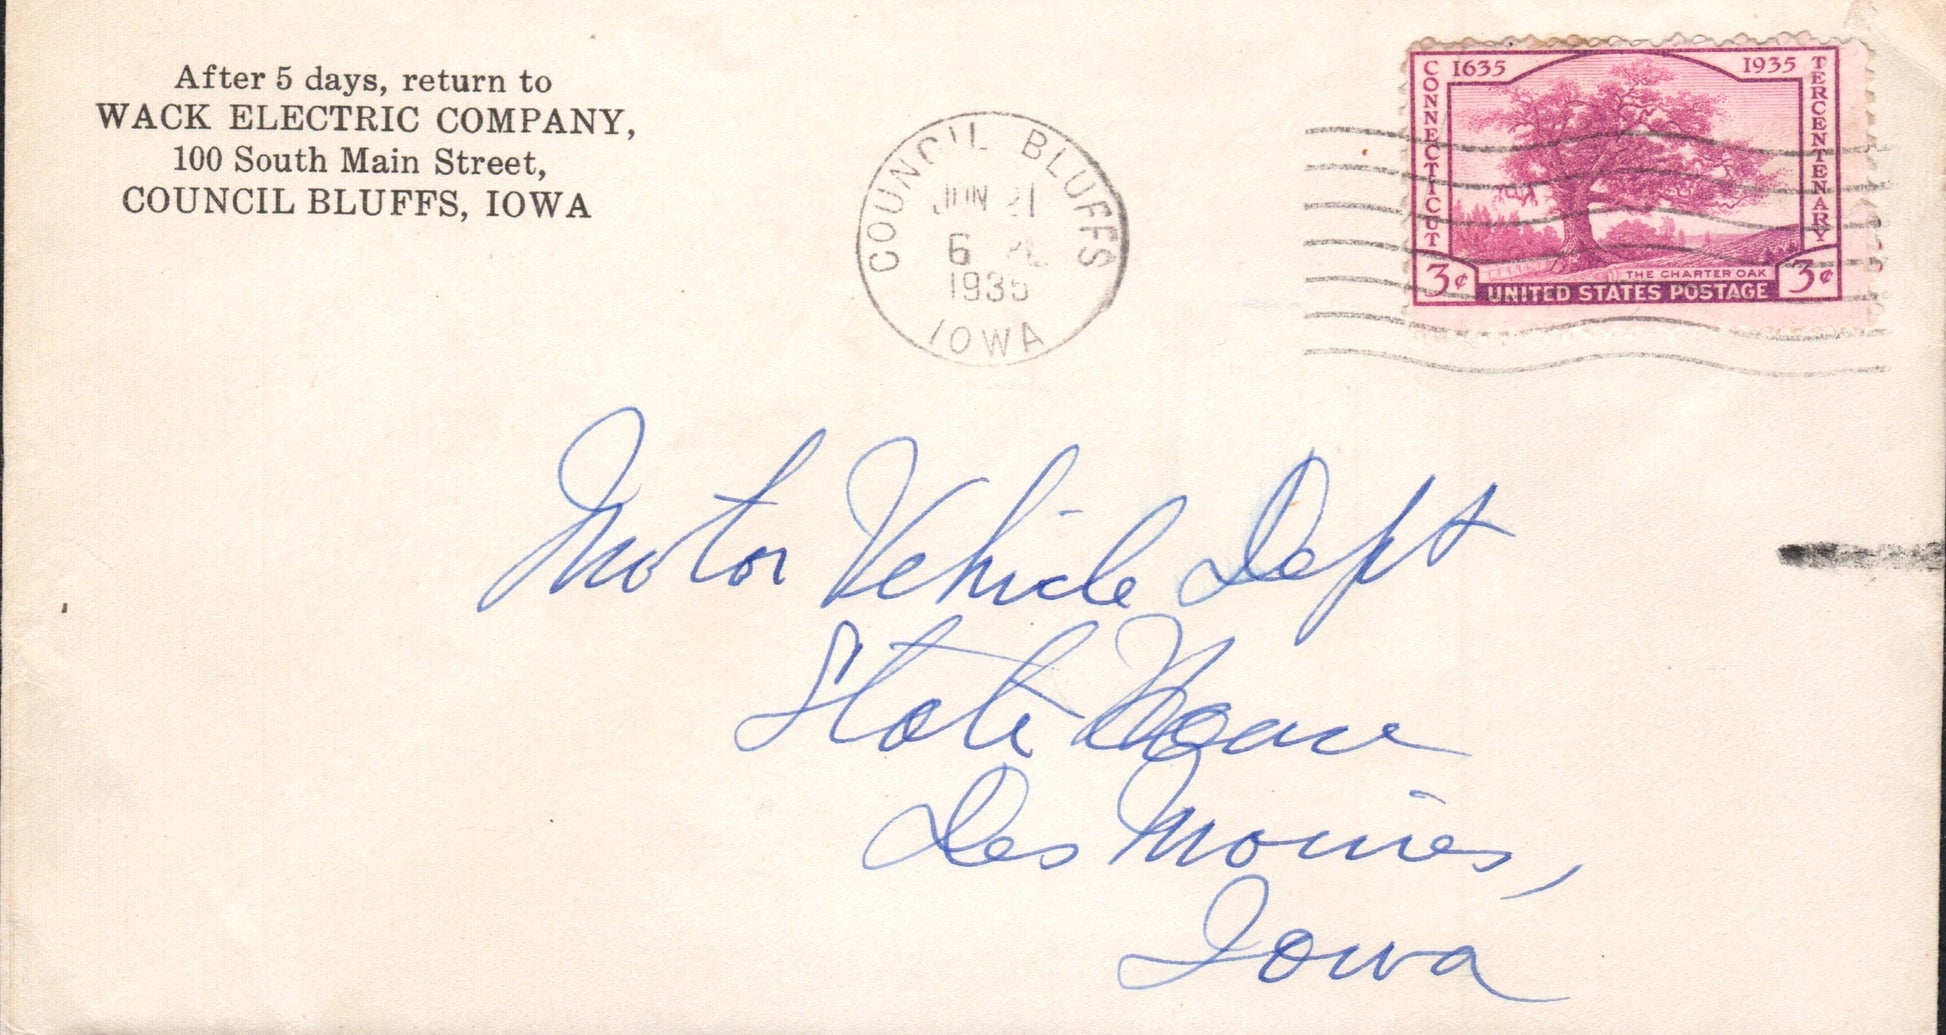 After 5 days, return to
WACK ELECTRIC COMPANY,
100 South Main Street,
COUNCIL BLUFFS, IOWA
COUNCIL BLUFFS
JUN 21
6
1935
IOWA
1635 1935
CONNECTICUT
TERCENTENARY
THE CHARTER OAK
3¢ UNITED STATES POSTAGE 3¢
Motor Vehicle Dept
State House
Des Moines,
Iowa